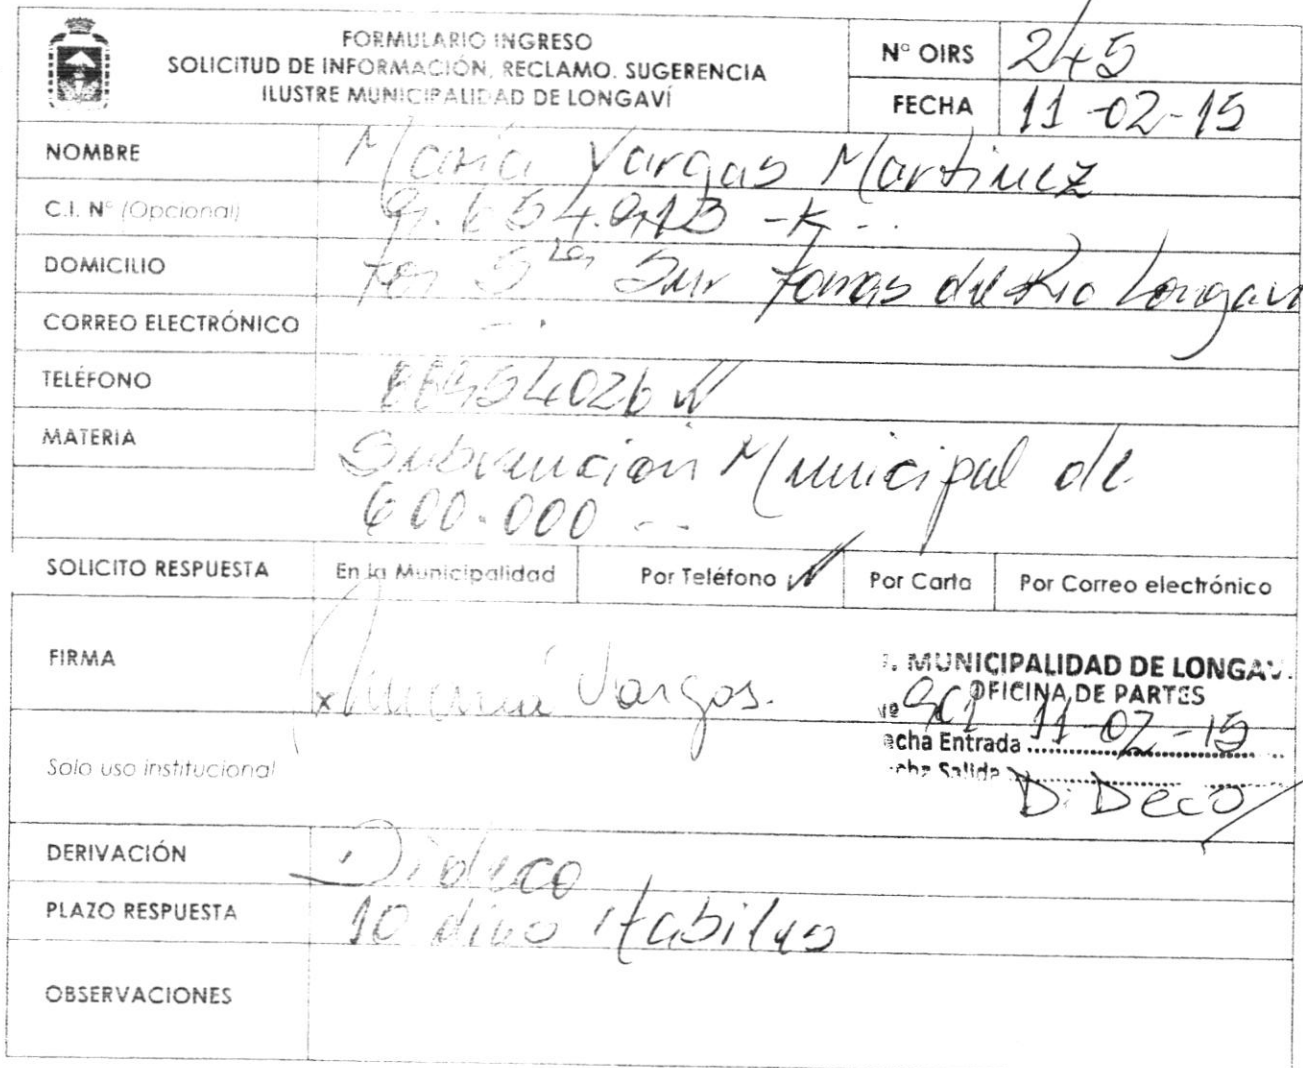 FORMULARIO INGRESO
SOLICITUD DE INFORMACIÓN, RECLAMO, SUGERENCIA
ILUSTRE MUNICIPALIDAD DE LONGAVÍ
N° OIRS 245
FECHA 11-02-15
NOMBRE Maria Vargas Martinez
C.I. N° (Opcional) -K
DOMICILIO Sur Longavi
CORREO ELECTRÓNICO -.
TELÉFONO
MATERIA Subvencion Municipal de
600.000 --
SOLICITO RESPUESTA En la Municipalidad Por Teléfono Por Carta Por Correo electrónico
FIRMA x Maria Vargas.
I. MUNICIPALIDAD DE LONGAVI
OFICINA DE PARTES
Nº
Fecha Entrada 11-02-15
Fecha Salida
DiDeco
Solo uso institucional
DERIVACIÓN Dideco
PLAZO RESPUESTA 10 dias Habiles
OBSERVACIONES